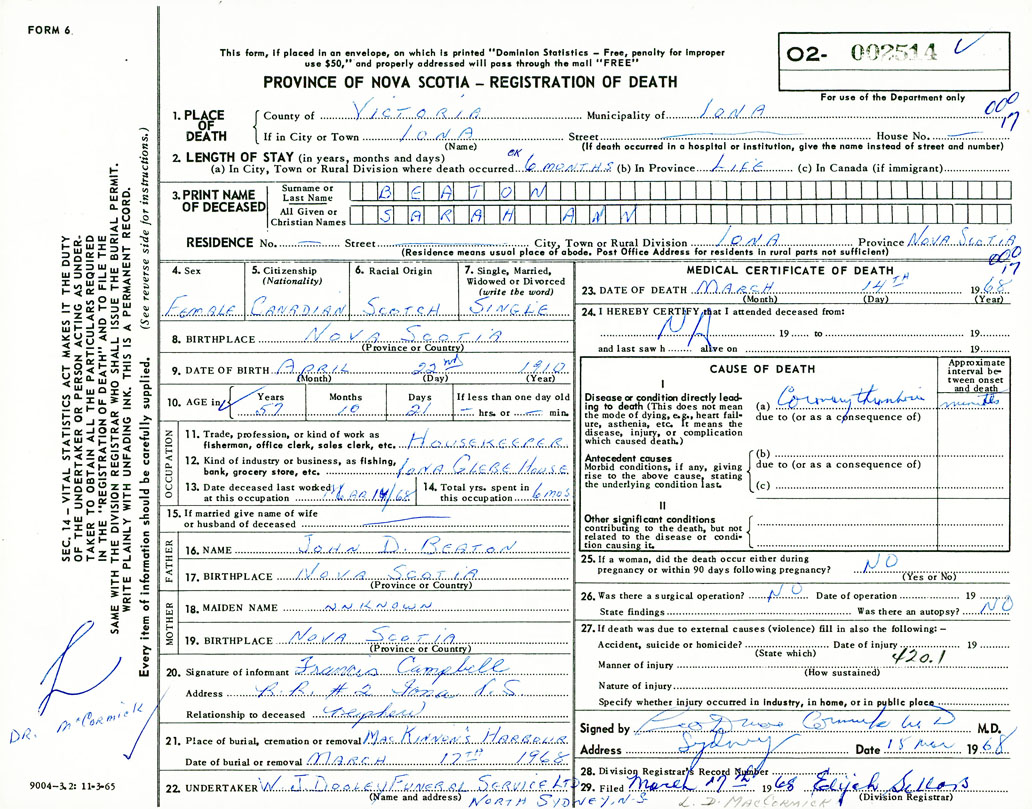 FORM 6
This form, if placed in an envelope, on which is printed "Dominion Statistics – Free, penalty for improper
use $50," and properly addressed will pass through the mail "FREE"
O2- 002514
PROVINCE OF NOVA SCOTIA – REGISTRATION OF DEATH
For use of the Department only
000
17
1. PLACE OF DEATH
County of VICTORIA Municipality of IONA
If in City or Town IONA Street House No.
(Name) (If death occurred in a hospital or institution, give the name instead of street and number)
2. LENGTH OF STAY (in years, months and days)
(a) In City, Town or Rural Division where death occurred 6 MONTHS (b) In Province LIFE (c) In Canada (if immigrant)
3. PRINT NAME OF DECEASED
Surname or Last Name BEATON
All Given or Christian Names SARAH ANN
RESIDENCE No. Street City, Town or Rural Division IONA Province NOVA SCOTIA
(Residence means usual place of abode. Post Office Address for residents in rural parts not sufficient)
000
17
4. Sex
FEMALE
5. Citizenship
(Nationality)
CANADIAN
6. Racial Origin
SCOTCH
7. Single, Married,
Widowed or Divorced
(write the word)
SINGLE
8. BIRTHPLACE NOVA SCOTIA
(Province or Country)
9. DATE OF BIRTH APRIL 22nd 1910
(Month) (Day) (Year)
10. AGE in Years Months Days If less than one day old
57 10 21 hrs. or min.
OCCUPATION
11. Trade, profession, or kind of work as
fisherman, office clerk, sales clerk, etc. HOUSEKEEPER
12. Kind of industry or business, as fishing,
bank, grocery store, etc. IONA GLEBE HOUSE
13. Date deceased last worked
at this occupation MAR 14/68
14. Total yrs. spent in
this occupation 6 MOS
15. If married give name of wife
or husband of deceased
FATHER
16. NAME JOHN D. BEATON
17. BIRTHPLACE NOVA SCOTIA
(Province or Country)
MOTHER
18. MAIDEN NAME UNKNOWN
19. BIRTHPLACE NOVA SCOTIA
(Province or Country)
20. Signature of informant Francis Campbell
Address R.R. #2 Iona N.S
Relationship to deceased nephew
21. Place of burial, cremation or removal MACKINNON'S HARBOUR
Date of burial or removal MARCH 17TH 1968
22. UNDERTAKER W. J. DOOLEY FUNERAL SERVICE LTD
(Name and address) NORTH SYDNEY, N.S.
MEDICAL CERTIFICATE OF DEATH
23. DATE OF DEATH MARCH 14TH 1968
(Month) (Day) (Year)
24. I HEREBY CERTIFY that I attended deceased from:
NA 19 to 19
and last saw h alive on 19
CAUSE OF DEATH
Approximate
interval be-
tween onset
and death
I
Disease or condition directly lead-
ing to death (This does not mean
the mode of dying, e.g., heart fail-
ure, asthenia, etc. It means the
disease, injury, or complication
which caused death.)
(a) Coronary thrombosis minutes
due to (or as a consequence of)
Antecedent causes
Morbid conditions, if any, giving
rise to the above cause, stating
the underlying condition last.
(b)
due to (or as a consequence of)
(c)
II
Other significant conditions
contributing to the death, but not
related to the disease or condi-
tion causing it.
25. If a woman, did the death occur either during
pregnancy or within 90 days following pregnancy? NO
(Yes or No)
26. Was there a surgical operation? NO Date of operation 19
State findings Was there an autopsy? NO
27. If death was due to external causes (violence) fill in also the following: –
Accident, suicide or homicide? Date of injury 19
(State which) 420.1
Manner of injury
(How sustained)
Nature of injury
Specify whether injury occurred in industry, in home, or in public place
Signed by M.D.
Address Sydney Date 15 Mar 1968
28. Division Registrar's Record Number
29. Filed March 17th 1968 Elijah Sellars
(Division Registrar)
L. D. MACCORMICK
SEC. 14 – VITAL STATISTICS ACT MAKES IT THE DUTY
OF THE UNDERTAKER OR PERSON ACTING AS UNDER-
TAKER TO OBTAIN ALL THE PARTICULARS REQUIRED
IN THE "REGISTRATION OF DEATH" AND TO FILE THE
SAME WITH THE DIVISION REGISTRAR WHO SHALL ISSUE THE BURIAL PERMIT.
WRITE PLAINLY WITH UNFADING INK. THIS IS A PERMANENT RECORD.
Every item of information should be carefully supplied. (See reverse side for instructions.)
DR. McCORMICK
9004-3.2: 11-3-65